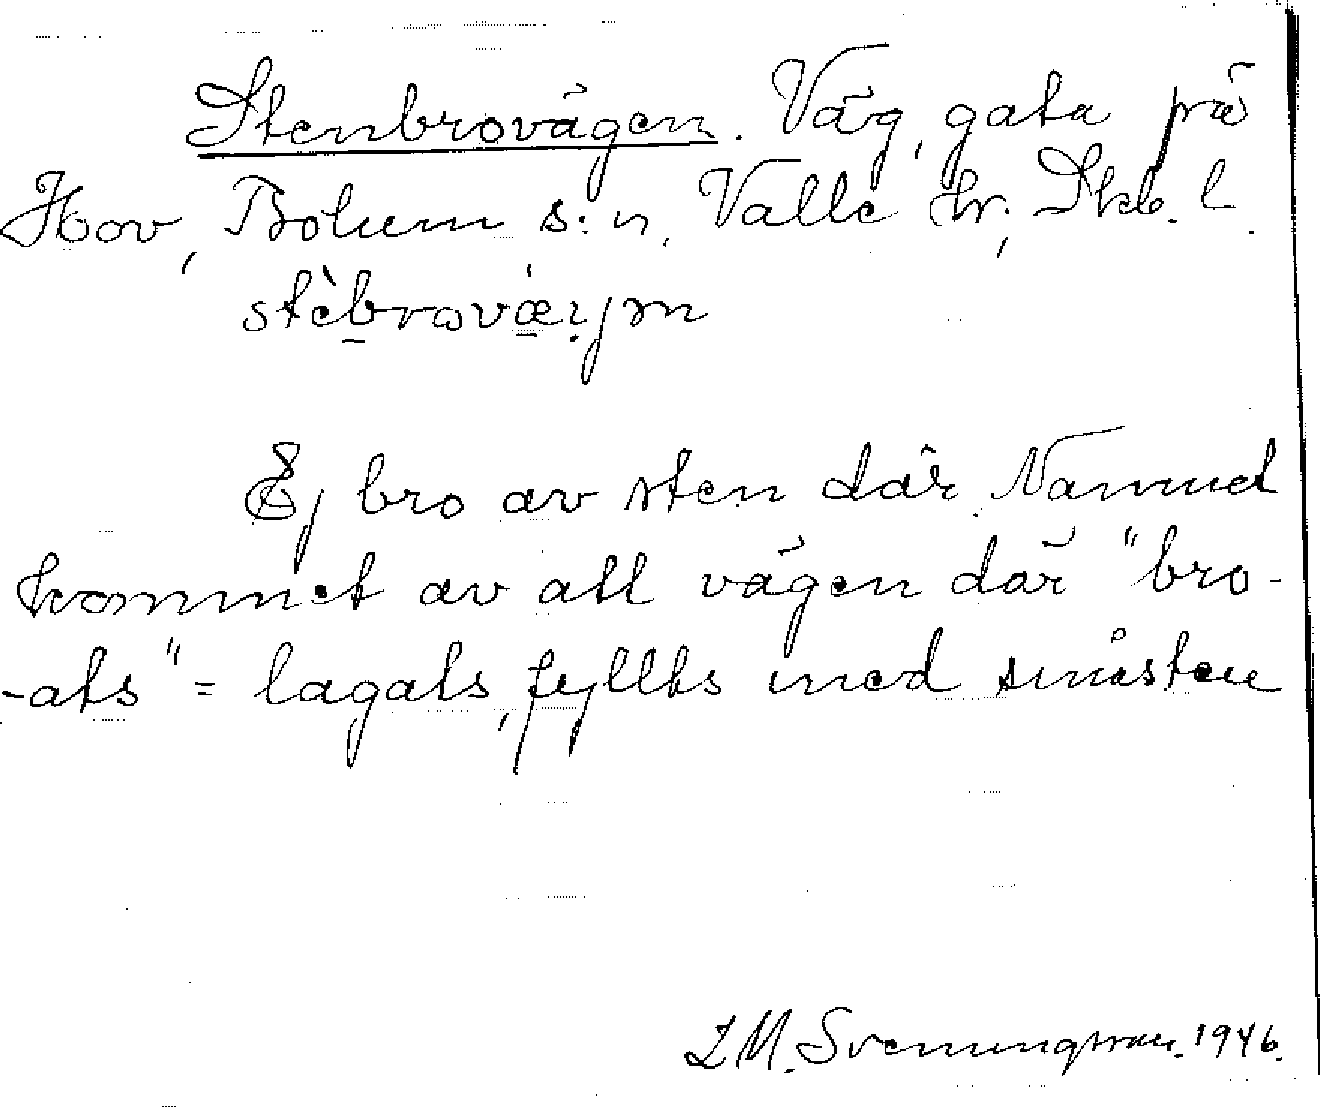 Stenbrovägen. Väg, gata på
Hov, Bolum s:n, Valle hr, Skb. l.
stèbrovæ̀ɩjm
Ej bro av sten där. Namnet
kommet av att vägen där "bro-
-ats" = lagats, fyllts med småsten
L M. Svenungsson. 1946.